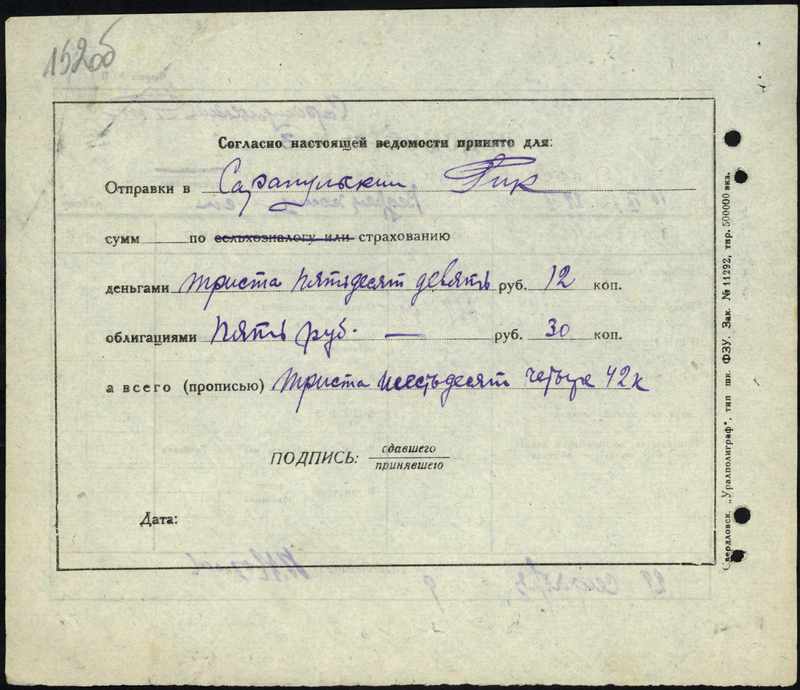 152об
Согласно настоящей ведомости принято для:
Отправки в Сарапульский Рик
сумм по сельхозналогу или страхованию
деньгами триста пятьдесят девять руб. 12 коп.
облигациями пять руб. — руб. 30 коп.
а всего (прописью) триста шестьдесят четыре 42 к
ПОДПИСЬ: сдавшего
принявшего
Дата:
Свердловск, „Уралполиграф", тип шк. ФЗУ. Зак. № 11292, тир. 500000 экз.